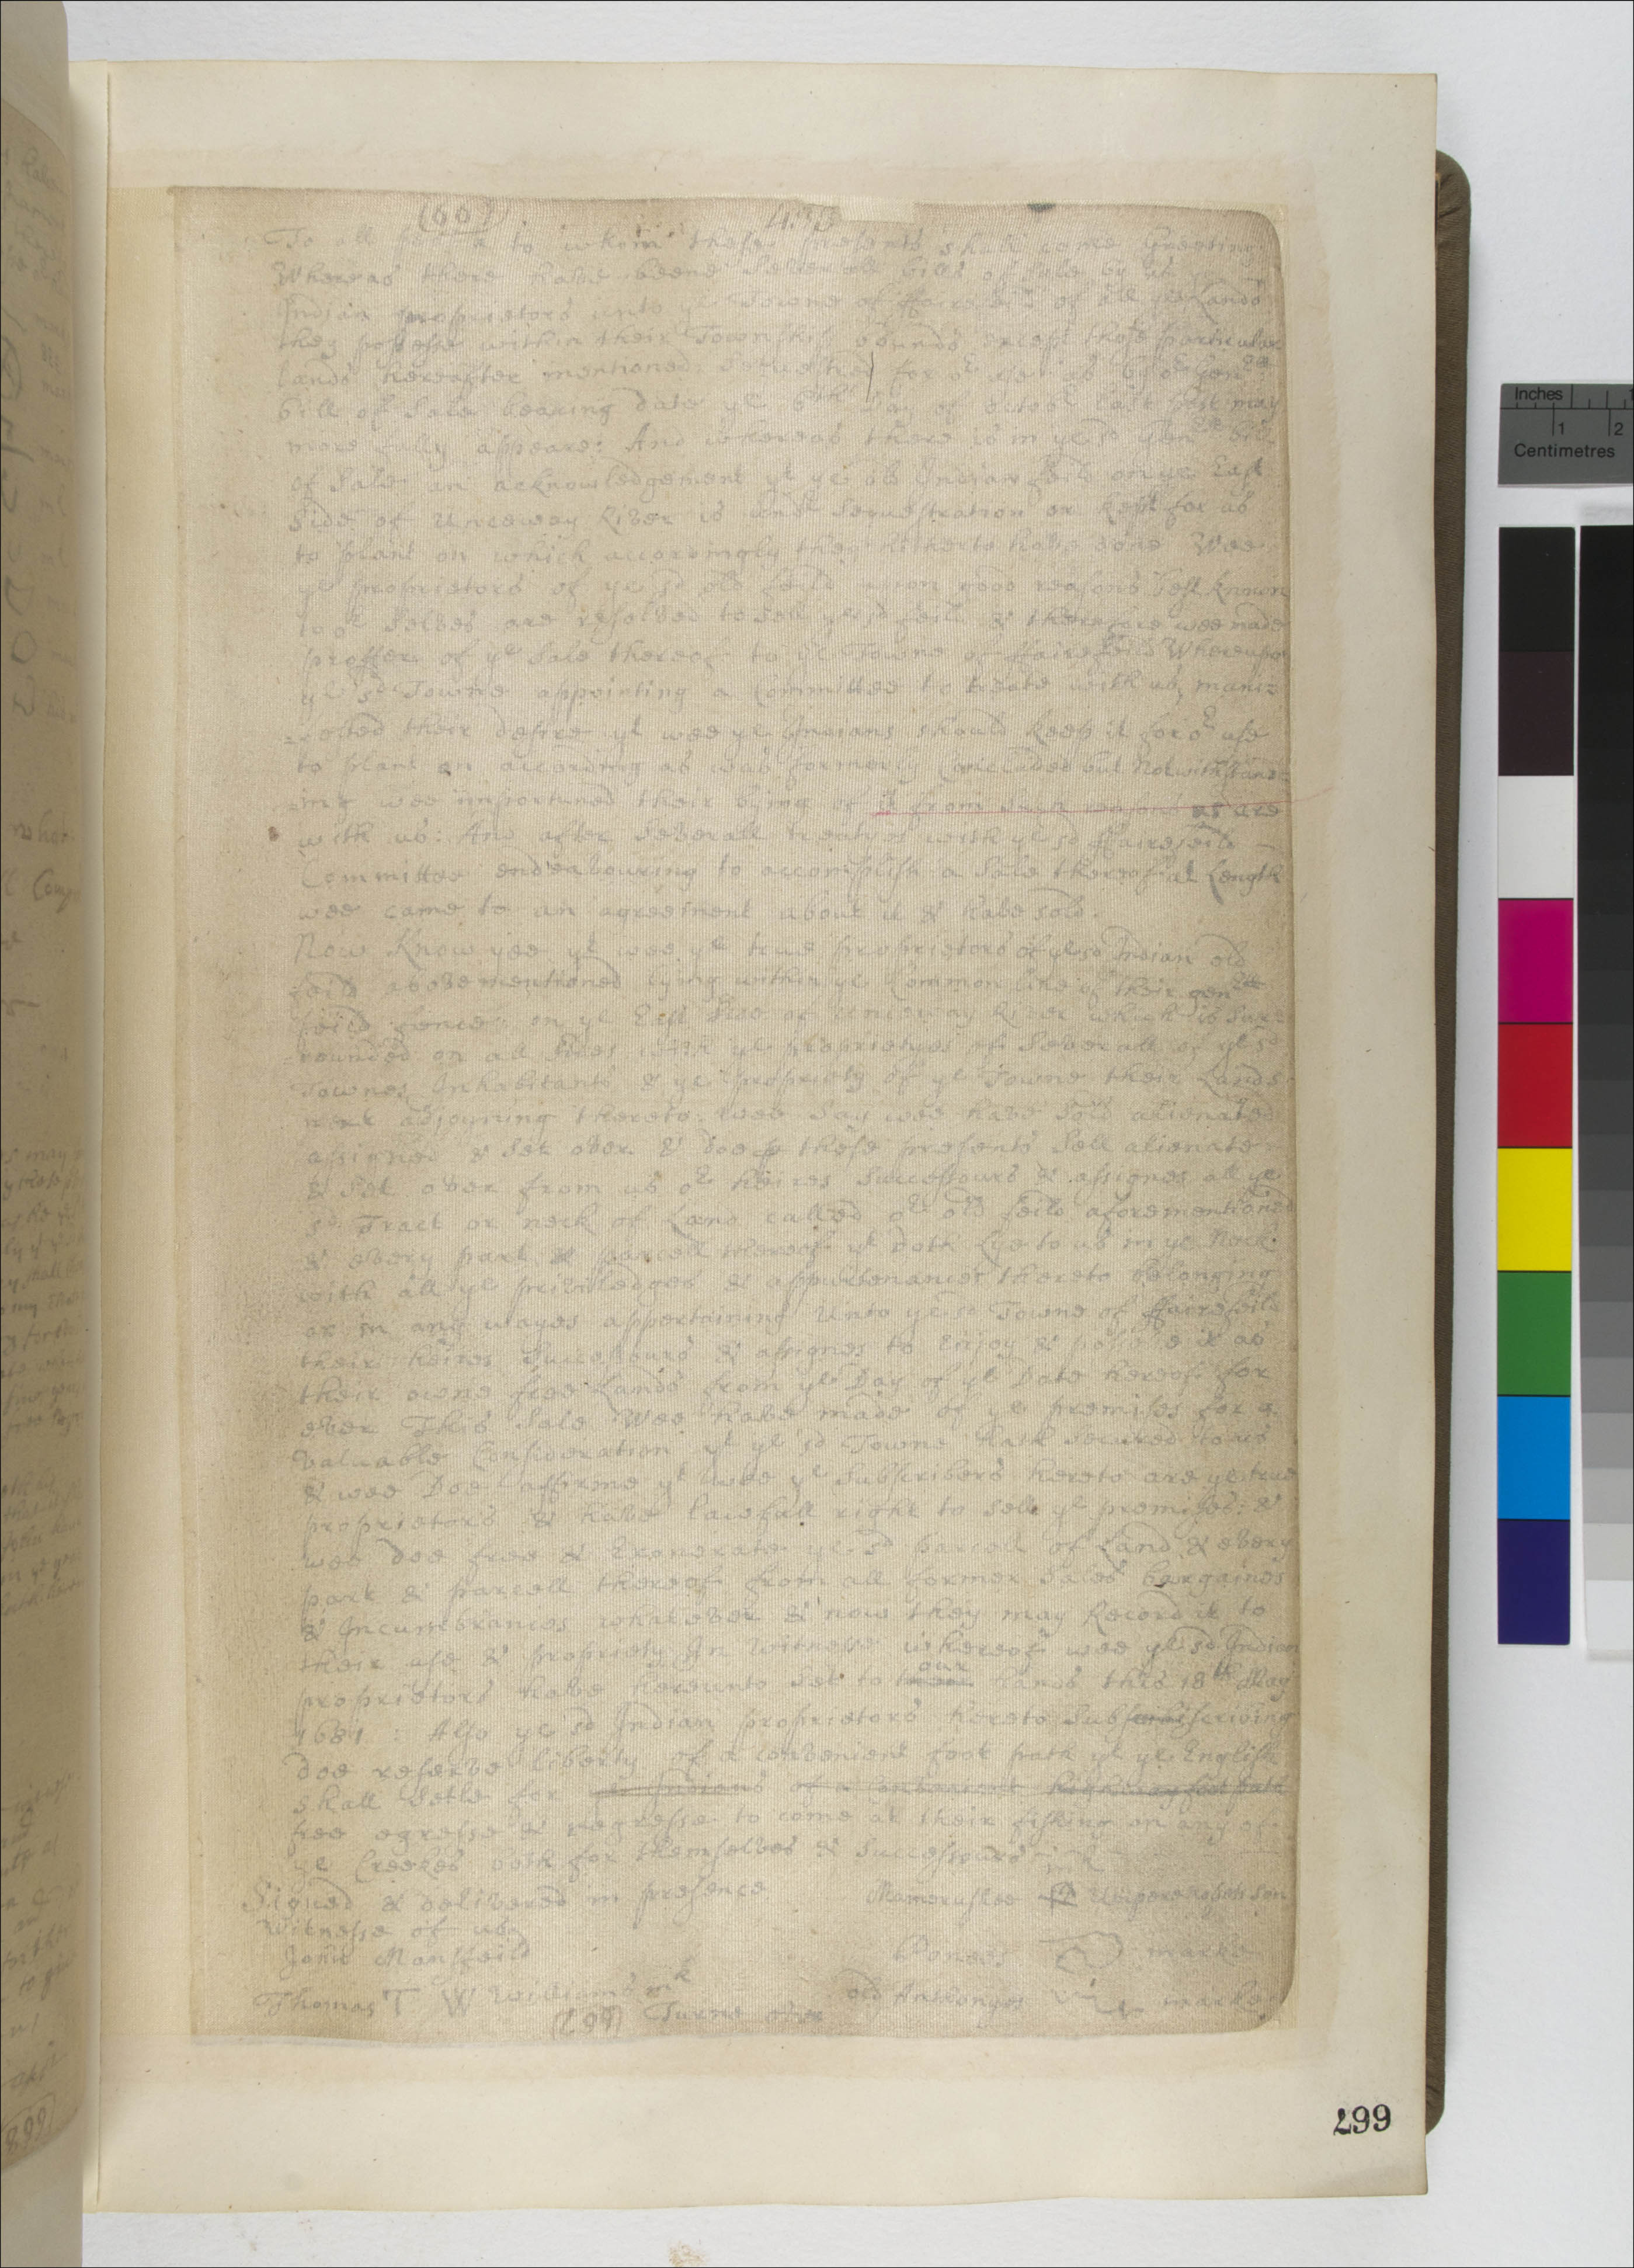 (66) 430
To all people to whom these presents shall come Greeting
Whereas there have beene severall bills of Sale by us ye
Indian proprietors unto ye Towne of ffairefeild of all ye Lands
they possesse within their Township bounds except those particular
lands hereafter mentioned Sequestred for or use as by or Genrll
bill of Sale bearing date ye 6th day of octobr last past may
more fully appeare: And whereas there is in ye sd Genrll bill
of Sale an acknowledgement yt ye old Indian feild on ye East
Side of Unceway River is undr Sequestration or kept for us
to plant on which accordingly they hitherto have done Wee
ye proprietors of ye sd old feild upon good reasons best known
to or Selves are resolved to sell ye sd feild & therefore wee made
proffer of ye Sale thereof to ye Towne of ffairefeild Whereupon
ye sd Towne appointing a Committee to treate with us, manif=
=ested their desire yt wee ye Indians should keep it for or use
to plant on according as was formerly Concluded but Notwithstand=
=ing wee importuned their bying of it from such reasons as are
with us: And after Severall treatyes with ye sd ffairefeild
Committee endeavouring to accomplish a Sale thereof at Length
wee came to an agreement about it & have sold.
Now Know yee yt wee ye true proprietors of ye sd Indian old
feild abovementioned lying within ye Common line of their genrll
feild fence: on ye East Side of Unceway River which is Sur=
=rounded on all Sides with ye proprietyes of Severall of ye sd
Townes Inhabitants & ye propriety of ye Towne their Lands
next adjoyning thereto. wee Say wee have Sold alienated
assigned & Set over & doe p these presents Sell alienate
& Set over from us or heires Successours & assignes all ye
sd Tract or neck of Land called or old feild aforementioned
& every part & parcell thereof yt doth Lye to us in ye Neck
with all ye priviledges & appurtenances thereto belonging
or in any wayes appertaining Unto ye sd Towne of ffairefeild
their heires Successours & assignes to Enjoy & possesse it as
their owne free Lands from ye Day of ye Date hereof for
ever This Sale Wee have made of ye premises for a
Valuable Consideration yt ye sd Towne hath secured to us
& wee Doe affirme yt wee ye Subscribers hereto are ye true
proprietors & have lawfull right to sell ye premises: &
wee doe free & Exonerate ye sd parcell of Land & every
part & parcell thereof from all former Sales bargaines
& Incumbrances whatever & now they may Record it to
their use & propriety In Witnesse whereof wee ye sd Indian
proprietors have hereunto Set to our hands this 18th May
1681: Also ye sd Indian proprietors hereto Subscribing
doe reserve liberty of a convenient foot path yt ye English
shall Setle for ye Indians of a convenient highway foot path
free egresse & regresse to come at their fishing on any of
ye Creekes both for themselves & Successours
Signed & delivered in presence
Witnesse of us
John Mansfeild
Thomas T W Williams mk
Mamerushee mk
Ponees marke
old Anthonyes marke
(667) Turne over
667
Inches
1 2
Centimetres